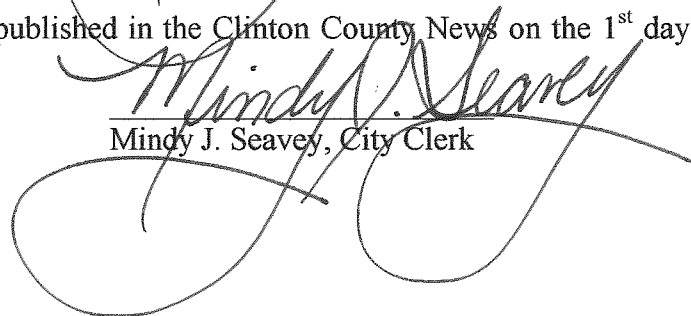 published in the Clinton County News on the 1st day
Mindy J. Seavey
Mindy J. Seavey, City Clerk